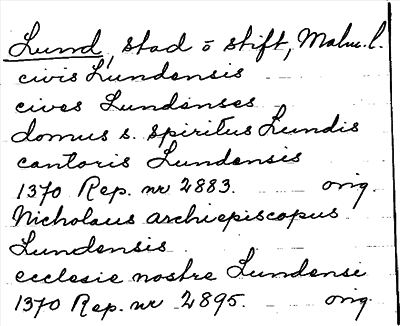 Lund, stad o stift, Malm.l.
civis Lundensis
cives Lundenses
domus s. spiritus Lundis
cantoris Lundensis
1370 Rep. nr 2883. orig.
Nicholaus archiepiscopus
Lundensis
ecclesie nostre Lundensi
1370 Rep. nr 2895. orig.